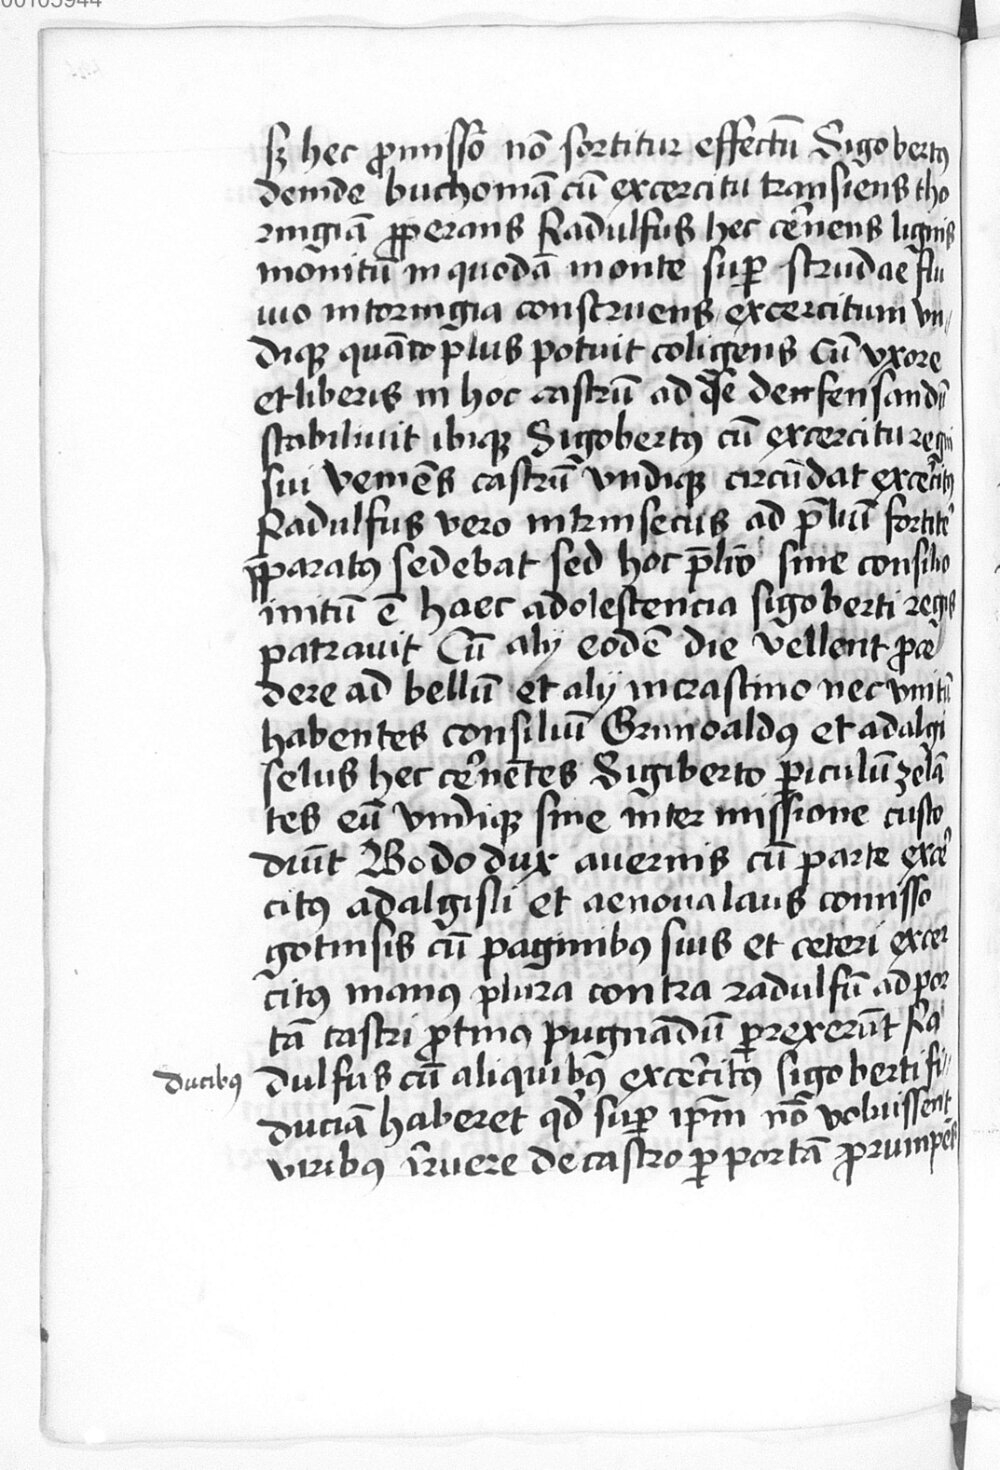 00105944
sꝫ hec ꝓmissō nō sortitur effectū Sigobertꝰ
deinde buchoniā cū excercitu transiens tho
ringiā ꝓperans Radulfus hec cēnens lignis
monitū in quodā monte suꝑ strudae flu
uio in toringia construens excercitum vn
diqꝫ quāto plus potuit coligens Cū vxore
et liberis in hoc castrū ad se deffensandū
stabiliuit ibiqꝫ Sigobertꝰ cū excercitu regni
sui veniēs castrū vndiqꝫ circūdat excēitꝰ
Radulfus vero intrinsecus ad p̄liū fortitē
p̄paratꝰ sedebat sed hoc p̄liō sine consilio
initū ē haec adolescencia sigoberti regis
patrauit Cū alij eodē die vellent ꝓce
dere ad bellū et alij in crastino nec vnitū
habentes consiliū Grimoaldꝰ et adalgi
selus hec cēnētes Sigiberto ꝑiculū zelā
tes eū vndiqꝫ sine intermissione custo
diūt Bodo dux auernis cū parte excē
citꝰ adalgisli et aenoualaus comisso
gotinsis cū paginibꝰ suis et ceteri excer
citꝰ manꝰ plura contra radulfū ad por
tā castri ꝓtinꝰ pugnādū ꝑrexerūt Ra
ducibꝰ
dulfus cū aliquibꝰ excēcitꝰ sigoberti fi
duciā haberet qđ suꝑ ip̄m nō voluissent
viribꝰ īruere de castro ꝑ portā ꝓrumpēs